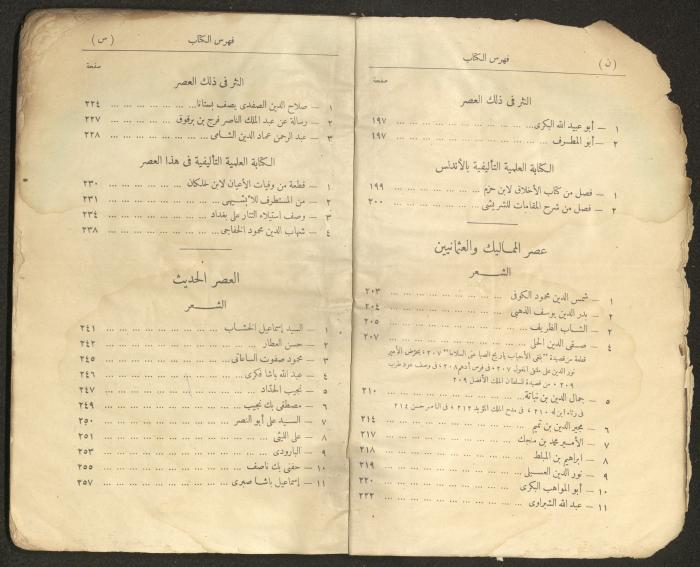 ( ن )
فهرس الكتاب
صفحة
النثر فى ذلك العصر
١ — أبو عبيد الله البكرى ... ١٩٧
٢ — أبو المطرف ... ١٩٧
الكتابة العلمية التأليفية بالأندلس
١ — فصل من كتاب الأخلاق لابن حزم ... ١٩٩
٢ — فصل من شرح المقامات للشريشى ... ٢٠٠
عصر المماليك والعثمانيين
الشعر
١ — شمس الدين محمود الكوفى ... ٢٠٣
٢ — بدر الدين يوسف الذهبى ... ٢٠٤
٣ — الشاب الظريف ... ٢٠٥
٤ — صفى الدين الحلى ... ٢٠٧
قطعة من قصيدة "بقى الأحباب بأريج الصبا على السلاما" ٢٠٧ ، يحرض الأمير
نور الدين على ملتقى المغول ٢٠٧ ، فى فرس أدهم ٢٠٨ ، فى وصف عود طرب
٢٠٩ ، من قصيدة للسلطان الملك الأفضل ٢٠٩
٥ — جمال الدين بن نباتة ... ٢١٠
فى رثاء ابن له ٢١٠ ، فى مدح الملك المؤيد ٢١٢ ، فى الناصر حسن ٢١٤
٦ — مجير الدين بن تميم ... ٢١٤
٧ — الأمير محمد بن منجك ... ٢١٧
٨ — ابراهيم بن المبلط ... ٢١٨
٩ — نور الدين العسيلى ... ٢١٩
١٠ — أبو المواهب البكرى ... ٢٢٠
١١ — عبد الله الشبراوى ... ٢٢٢
فهرس الكتاب
( س )
صفحة
النثر فى ذلك العصر
١ — صلاح الدين الصفدى يصف بستانا ... ٢٢٤
٢ — رسالة عن عبد الملك الناصر فرج بن برقوق ... ٢٢٧
٣ — عبد الرحمن عماد الدين الشامى ... ٢٢٨
الكتابة العلمية التأليفية فى هذا العصر
١ — قطعة من وفيات الأعيان لابن خلكان ... ٢٣٠
٢ — من المستطرف للابشيهى ... ٢٣١
٣ — وصف استيلاء التتار على بغداد ... ٢٣٤
٤ — شهاب الدين محمود الخفاجى ... ٢٣٨
العصر الحديث
الشعر
١ — السيد إسماعيل الخشاب ... ٢٤١
٢ — حسن العطار ... ٢٤٢
٣ — محمود صفوت الساعاتى ... ٢٤٥
٤ — عبد الله باشا فكرى ... ٢٤٦
٥ — نجيب الحداد ... ٢٤٧
٦ — مصطفى بك نجيب ... ٢٤٩
٧ — السيد على أبو النصر ... ٢٥٠
٨ — على الليثى ... ٢٥١
٩ — البارودى ... ٢٥٣
١٠ — حفنى بك ناصف ... ٢٥٥
١١ — إسماعيل باشا صبرى ... ٢٥٧